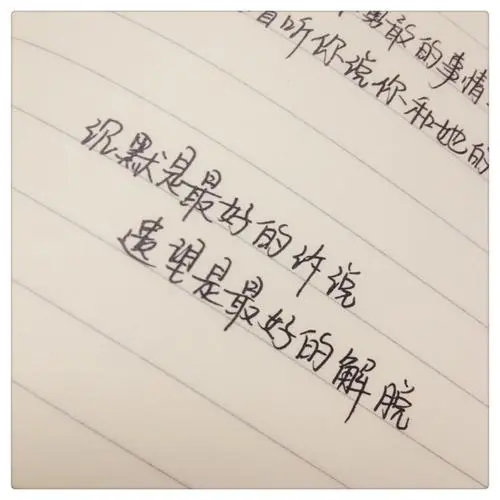 勇敢的事情
着听你说你和她的
沉默是最好的诉说
遗望是最好的解脱